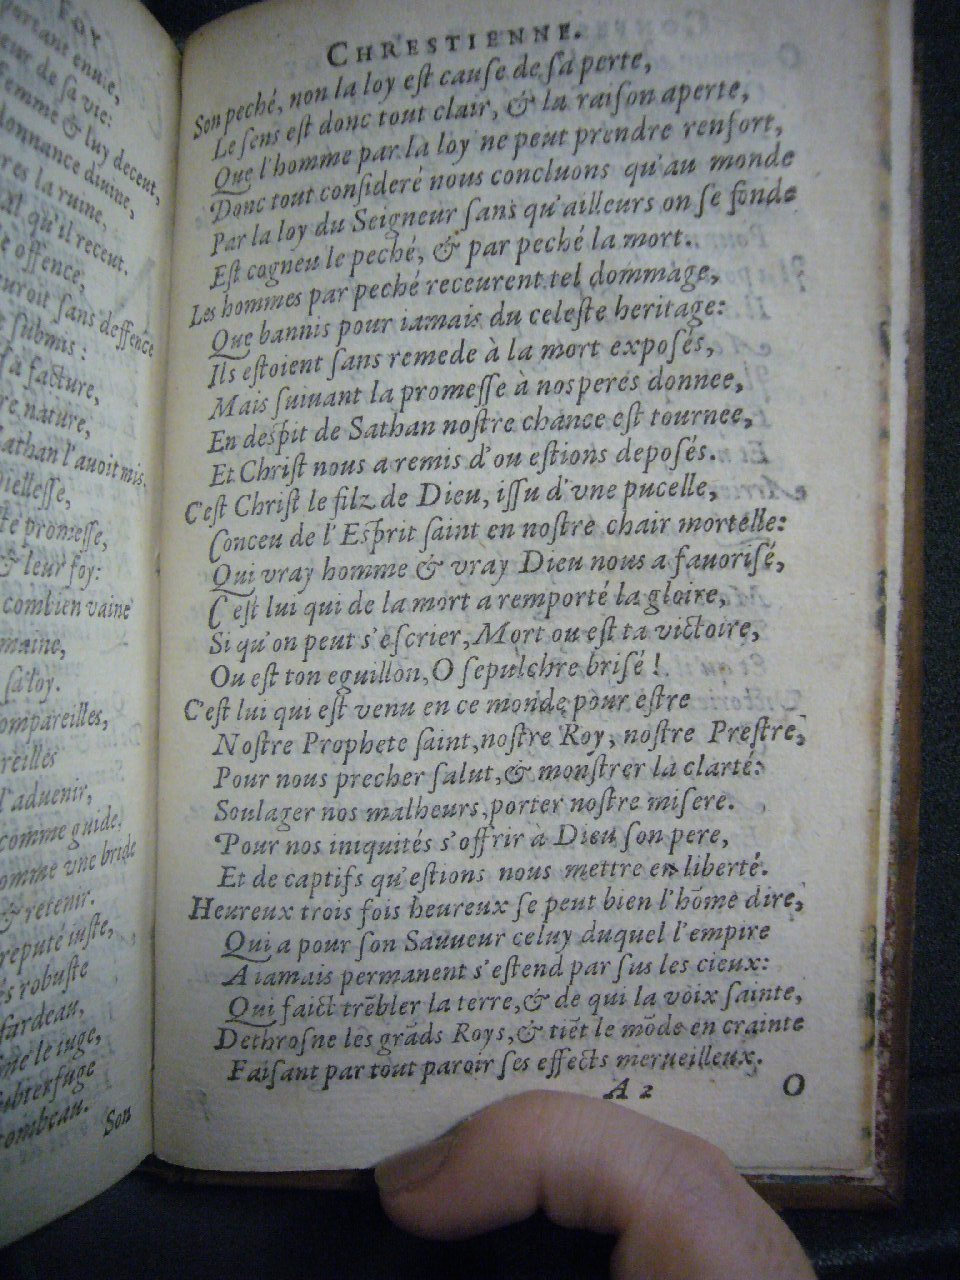 FOY
portant ennie,
de sa vie:
femme & luy decent,
donnance divine,
res la ruine,
qu'il recent.
offence,
uroit sans deffence
submis:
sa facture,
re nature,
Sathan l'auoit mis,
promesse,
& leur foy:
combien vaine
maine,
sa loy.
ompareilles,
reilles
l'aduenir,
comme guide,
omme vne bride
& retenir.
reputé iuste,
robuste
fardeau,
me le iuge,
subterfuge
tombeau.
Son
CHRESTIENNE.
Son peché, non la loy est cause de sa perte,
Le sens est donc tout clair, & la raison aperte,
Que l'homme par la loy ne peut prendre renfort,
Donc tout consideré nous concluons qu'au monde
Par la loy du Seigneur sans qu'ailleurs on se fonde
Est cogneu le peché, & par peché la mort.
Les hommes par peché receurent tel dommage,
Que bannis pour iamais du celeste heritage:
Ils estoient sans remede à la mort exposés,
Mais suiuant la promesse à nos peres donnee,
En despit de Sathan nostre chance est tournee,
Et Christ nous a remis d'ou estions deposés.
C'est Christ le filz de Dieu, issu d'vne pucelle,
Conceu de l'Esprit saint en nostre chair mortelle:
Qui vray homme & vray Dieu nous a fauorisé,
C'est lui qui de la mort a remporté la gloire,
Si qu'on peut s'escrier, Mort ou est ta victoire,
Ou est ton eguillon, O sepulchre brisé!
C'est lui qui est venu en ce monde pour estre
Nostre Prophete saint, nostre Roy, nostre Prestre,
Pour nous precher salut, & monstrer la clarté:
Soulager nos malheurs, porter nostre misere.
Pour nos iniquités s'offrir à Dieu son pere,
Et de captifs qu'estions nous mettre en liberté.
Heureux trois fois heureux se peut bien l'hõme dire,
Qui a pour son Sauueur celuy duquel l'empire
A iamais permanent s'estend par sus les cieux:
Qui faict trẽbler la terre, & de qui la voix sainte,
Dethrosne les grãds Roys, & tiẽt le mõde en crainte
Faisant par tout paroir ses effects merueilleux.
A 2 O